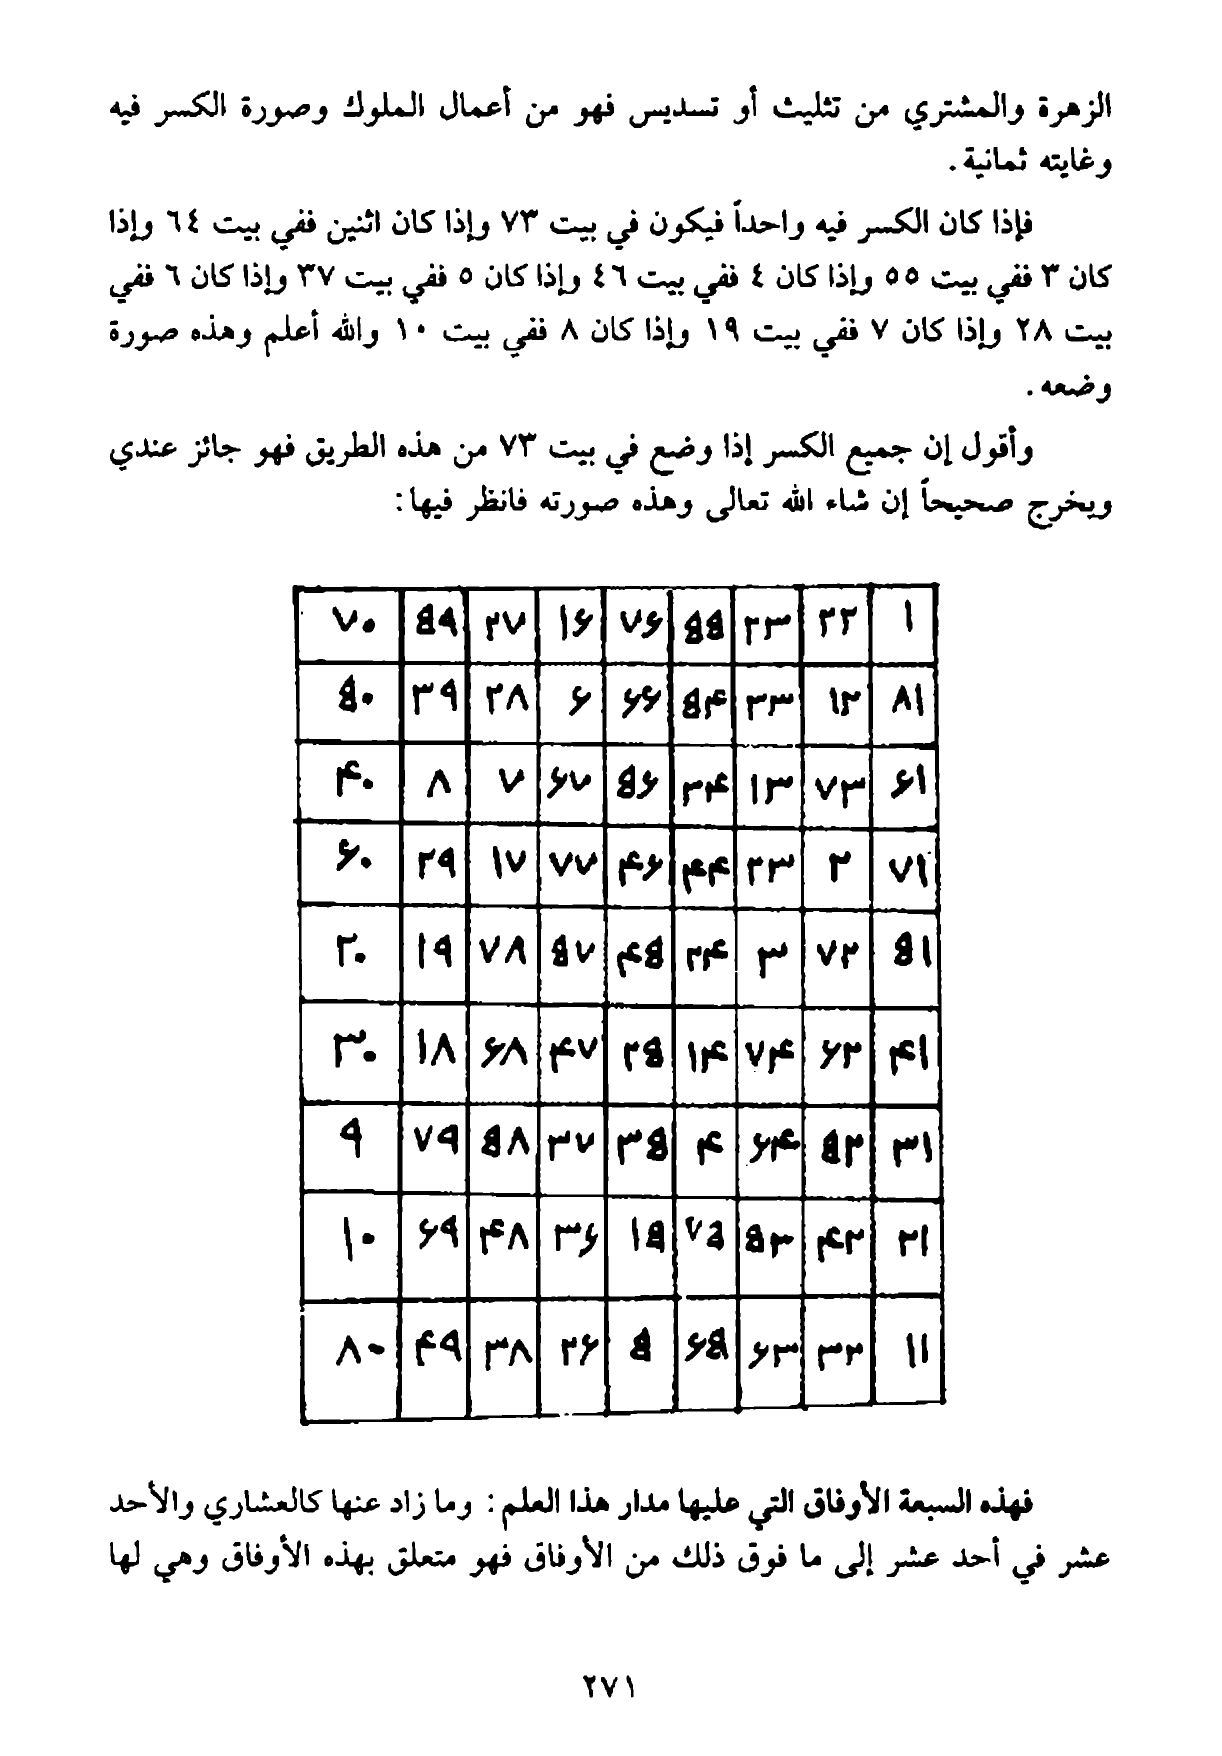 الزهرة والمشتري من تثليث أو تسديس فهو من أعمال الملوك وصورة الكسر فيه
وغايته ثمانية .
فإذا كان الكسر فيه واحداً فيكون في بيت ٧٣ وإذا كان اثنين ففي بيت ٦٤ وإذا
كان ٣ ففي بيت ٥٥ وإذا كان ٤ ففي بيت ٤٦ وإذا كان ٥ ففي بيت ٣٧ وإذا كان ٦ ففي
بيت ٢٨ وإذا كان ٧ ففي بيت ١٩ وإذا كان ٨ ففي بيت ١٠ والله أعلم وهذه صورة
وضعه .
وأقول إن جميع الكسر إذا وضع في بيت ٧٣ من هذه الطريق فهو جائز عندي
ويخرج صحيحاً إن شاء الله تعالى وهذه صورته فانظر فيها :
١ ٢٢ ٢٣ ٥٥ ٧۶ ١۶ ٢٧ ٥٩ ٧٠
٨١ ١٢ ٣٣ ٥۴ ۶۶ ۶ ٢٨ ٣٩ ٥٠
۶١ ٧٣ ١٣ ٣۴ ٥۶ ۶٧ ٧ ٨ ۴٠
٧١ ٢ ٢٣ ۴۴ ۴۶ ٧٧ ١٧ ٢٩ ۶٠
٥١ ٧٢ ٣ ٢۴ ۴٥ ٥٧ ٧٨ ١٩ ٢٠
۴١ ۶٢ ٧۴ ١۴ ٢٥ ۴٧ ۶٨ ١٨ ٣٠
٣١ ٥٢ ۶۴ ۴ ٣٥ ٣٧ ٥٨ ٧٩ ٩
٢١ ۴٢ ٥٣ ٧٥ ١٥ ٣۶ ۴٨ ۶٩ ١٠
١١ ٣٢ ۶٣ ۶٥ ٥ ٢۶ ٣٨ ۴٩ ٨٠
فهذه السبعة الأوفاق التي عليها مدار هذا العلم : وما زاد عنها كالعشاري والأحد
عشر في أحد عشر إلى ما فوق ذلك من الأوفاق فهو متعلق بهذه الأوفاق وهي لها
٢٧١